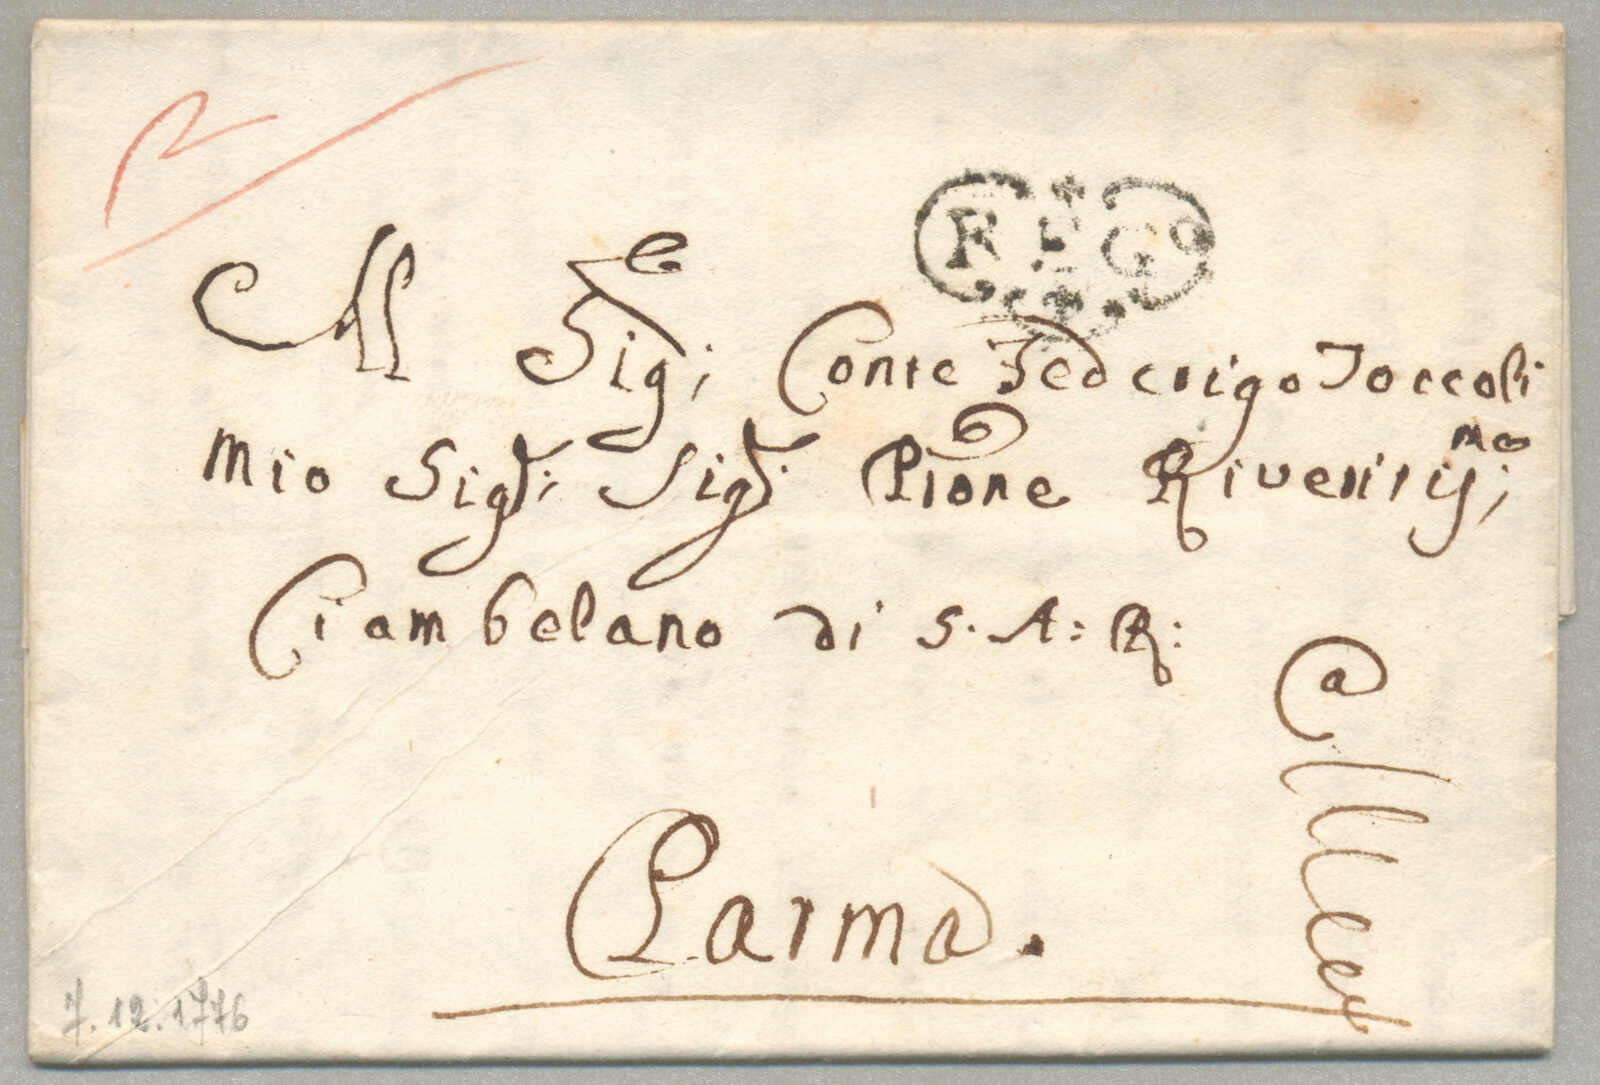 R E G°
All Sig; Conte Federigo Toccoli
mio Sigr: Sigr: Prone Riveritis;mo
Ciambelano di S. A: R:
Parma.
7.12.1776